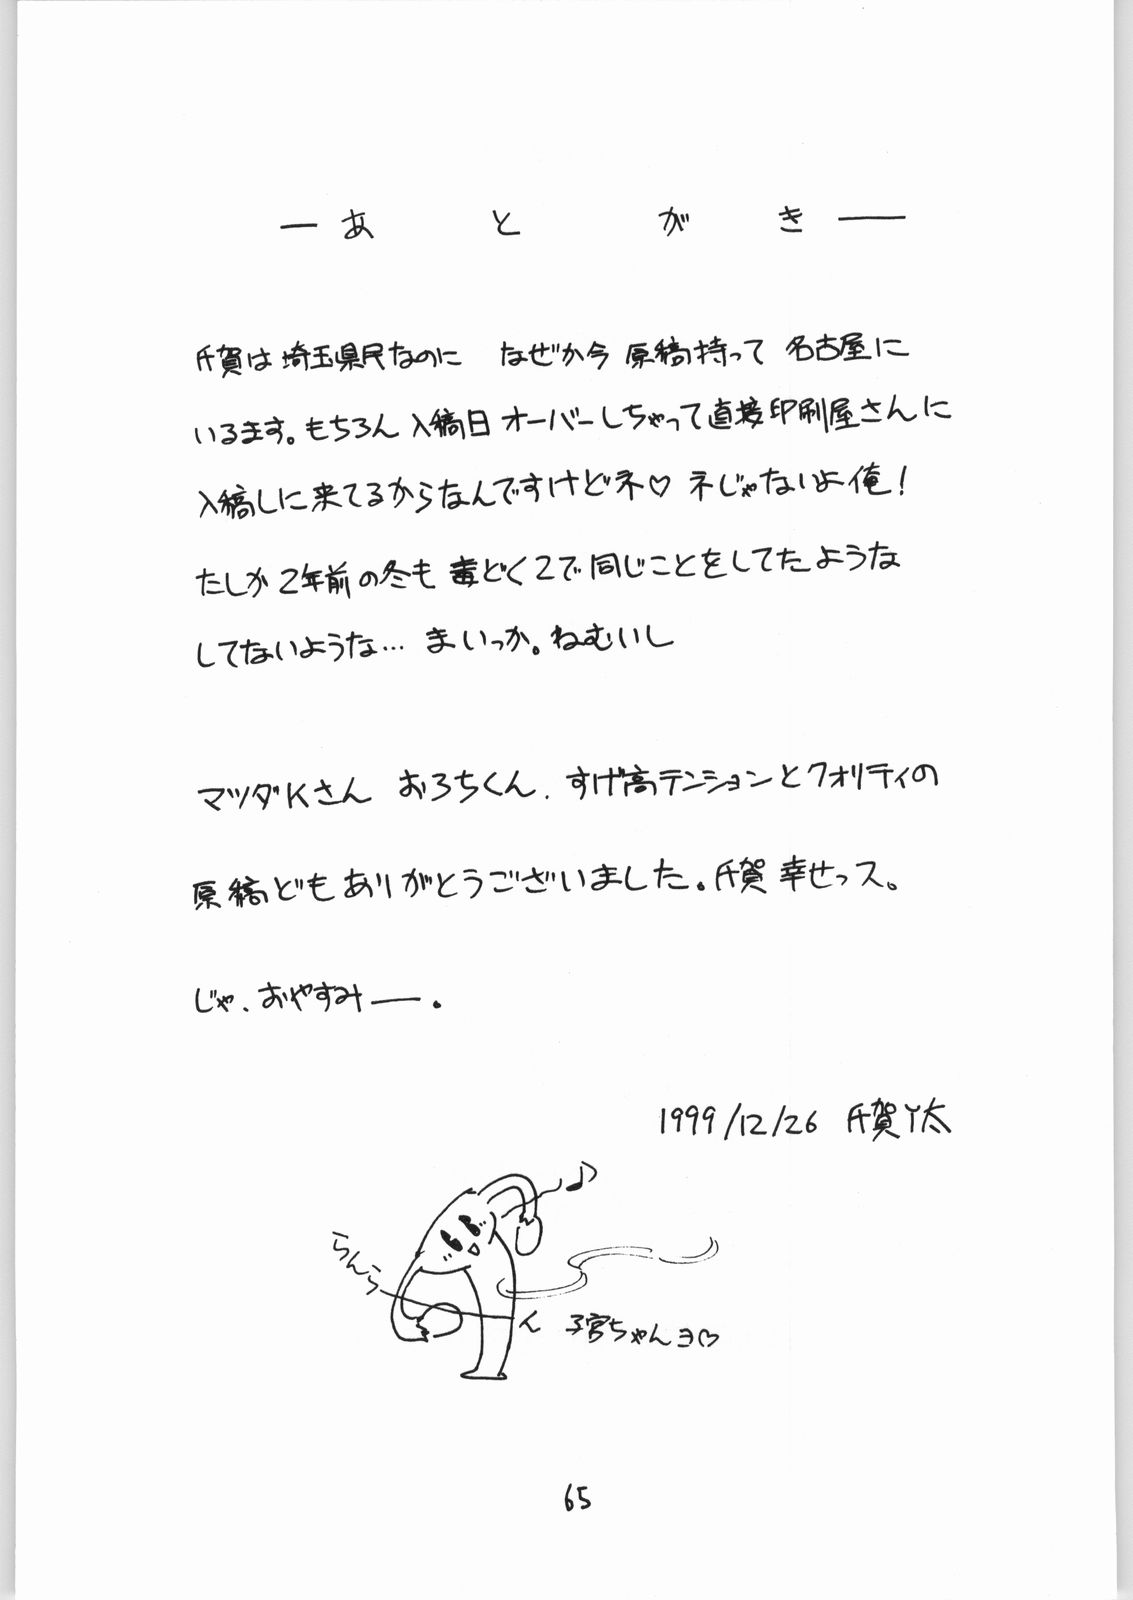 ―あとがき―
氏賀は埼玉県民なのに なぜか今 原稿持って 名古屋に
いるます。もちろん 入稿日 オーバーしちゃって直接印刷屋さんに
入稿しに来てるからなんですけどネ♡ ネじゃないよ俺!
たしか2年前の冬も 毒どく2で同じことをしてたような
してないような… まいっか。ねむいし
マツダKさん おろちくん、すげ高テンションとクオリティの
原稿どもありがとうございました。氏賀 幸せっス。
じゃ、おやすみ―。
1999/12/26 氏賀Y太
♪
らんら
ん
子宮ちゃんヨ♡
65